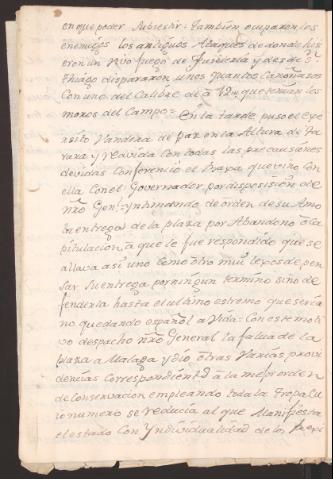 en que poder subsistir: tambien ocuparon los
enemigos los antiguos Ataques de donde hisi
eron un vivo fuego de fusileria y desde Sn.
Thiago dispararon unos quantos Cañonasos
Con uno del Calibre de à 12, que tenian los
moros del Campo= En la tarde puso el exer
sito Vandera de paz en la Altura de Ta
raxa y reavida con todas las precausiones
devidas Conferenció el Traxa que vino con
ella con el Governador, por disposision de
nro Genl. yntimando de orden de su Amo
la entrega de la plaza por Abandono ò Ca
pitulasion à que le fue respondido que se
allava asi uno como otro muy lexos de pen
sar su entrega por ningun termino sino de
fenderla hasta el ultimo estremo que seria
no quedando español à Vida: Con este moti
vo despacho nro General la falua de la
plaza a Malaga y dio otras varias provi
dencias correspondientes à la mejor orden
de Conservacion empleando toda la Tropa Cu
io numero se reducia al que Manifiesta
el estado Con Yndividualidad de los